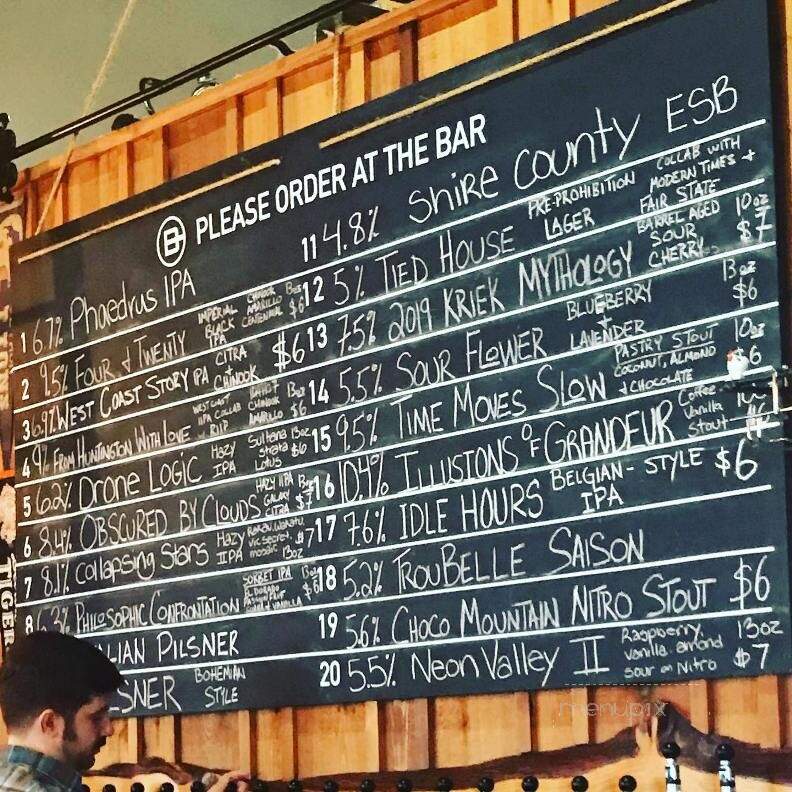 B PLEASE ORDER AT THE BAR
1 6.7% Phaedrus IPA
2 9.5% FOUR & TWENTY IMPERIAL BLACK IPA CHINOOK AMARILLO CENTENNIAL $6
3 6.9% WEST COAST STORY IPA CITRA + CHINOOK $6
4 9% FROM HUNTINGTON WITH LOVE WEST COAST IIPA COLLAB W/ RIIP CHINOOK AMARILLO $6
5 6.2% Drone Logic Hazy IPA Sultana Strata Lotus 13oz $6
6 8.4% OBSCURED BY CLOUDS HAZY IIPA GALAXY CITRA $7
7 8.1% Collapsing Stars Hazy IIPA Rakau, Wakatu, Vic Secret, mosaic 13oz $7
8 PHILOSOPHIC CONFRONTATION SORBET IPA EL DORADO PASSIONFRUIT VANILLA 13oz $6
LIAN PILSNER
SNER BOHEMIAN STYLE
11 4.8% Shire County ESB
12 5% TIED HOUSE PRE-PROHIBITION LAGER COLLAB WITH MODERN TIMES + FAIR STATE
13 7.5% 2019 KRIEK MYTHOLOGY BARREL AGED SOUR CHERRY 10oz $7
14 5.5% SOUR FLOWER BLUEBERRY + LAVENDER 13oz $6
15 9.5% TIME MOVES SLOW PASTRY STOUT COCONUT, ALMOND + CHOCOLATE 10oz $6
16 10.4% ILLUSIONS OF GRANDEUR Coffee Vanilla Stout
17 7.6% IDLE HOURS BELGIAN-STYLE IPA $6
18 5.2% TROUBELLE SAISON
19 5.6% CHOCO MOUNTAIN NITRO STOUT $6
20 5.5% Neon Valley II Raspberry, vanilla, almond sour on Nitro 13oz $7
TIGER
menupix